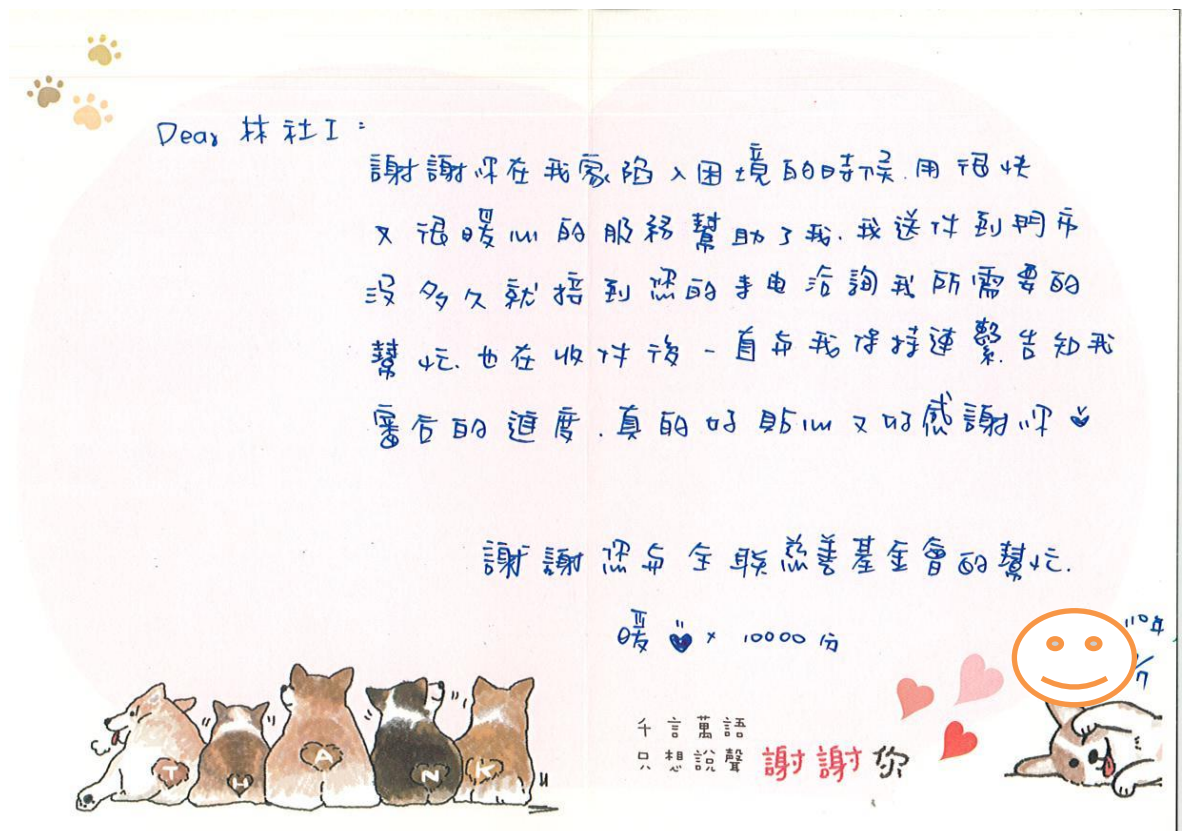 Dear 林社工：
謝謝你在我家陷入困境的時候.用很快
又很暖心的服務幫助了我.我送件到門市
沒多久就接到您的來电洽詢我所需要的
幫忙.也在收件後一直与我保持連繫.告知我
審合的進度.真的好貼心又好感謝你
謝謝您与全聯慈善基金會的幫忙.
暖 × 10000 份
110年
1/7
THANK
千言萬語
只想說聲 謝謝你